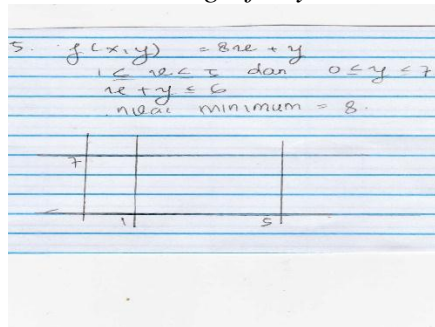 5. f(x,y) = 8x + y
1 ≤ x ≤ 5 dan 0 ≤ y ≤ 7
x + y ≤ 6
nilai minimum = 8.
7
1 5